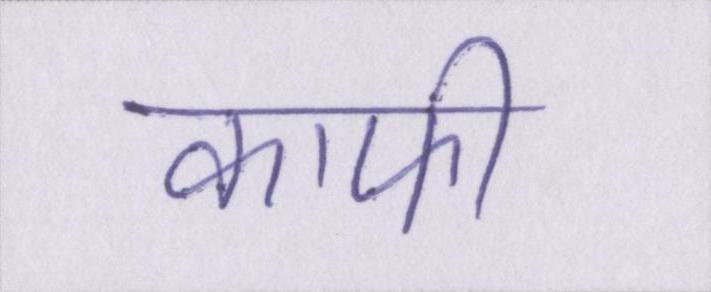 काफी